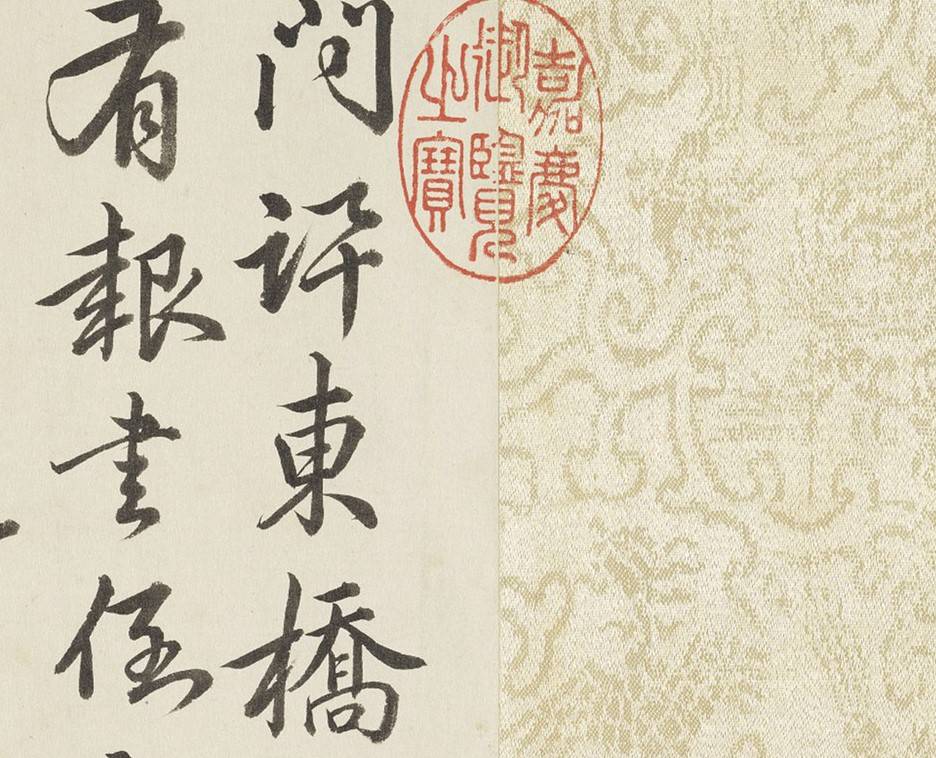 嘉慶
御覽
之寶
問訊東橋
有報書倒